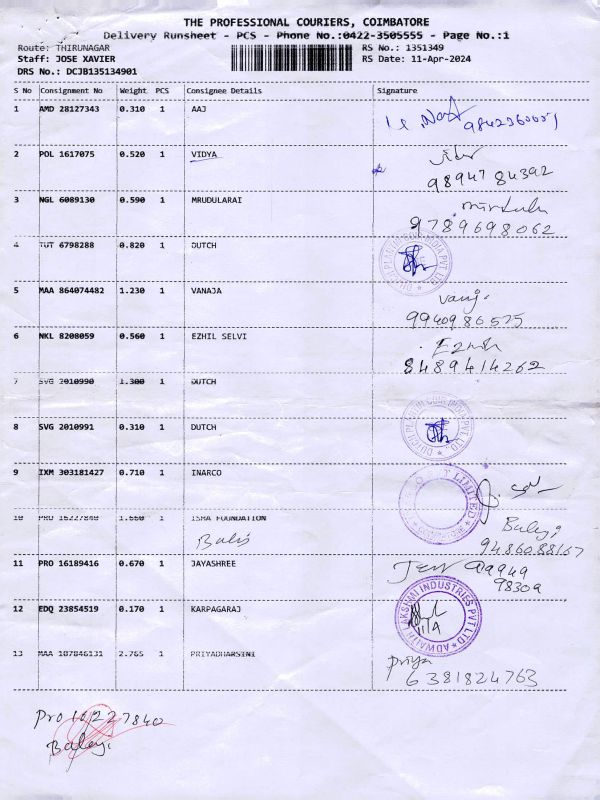 THE PROFESSIONAL COURIERS, COIMBATORE
Delivery Runsheet - PCS - Phone No.:0422-3505555 - Page No.:1
Route: THIRUNAGAR
RS No.: 1351349
Staff: JOSE XAVIER
RS Date: 11-Apr-2024
DRS No.: DCJB135134901
S No Consignment No Weight PCS Consignee Details Signature
1 AMD 28127343 0.310 1 AAJ
2 POL 1617075 0.520 1 VIDYA
9894784392
3 NGL 6089130 0.590 1 MRUDULARAI
9789698062
4 TUT 6798288 0.820 1 DUTCH
5 MAA 864074482 1.230 1 VANAJA
vanj.
9940986575
6 NKL 8208059 0.560 1 EZHIL SELVI
8489414262
7 SVG 2010990 1.300 1 DUTCH
8 SVG 2010991 0.310 1 DUTCH
9 IXM 303181427 0.710 1 INARCO
LIMITED
COIMBATORE
10 PRO 16227840 1.660 1 ISHA FOUNDATION
Balaji
9486088167
11 PRO 16189416 0.670 1 JAYASHREE
99949
98309
12 EDQ 23854519 0.170 1 KARPAGARAJ
ADWAITH LAKSHMI INDUSTRIES PVT LTD
13 MAA 187846131 2.765 1 PRIYADHARSINI
Priya
6381824763
Pro 16227840
Balaji